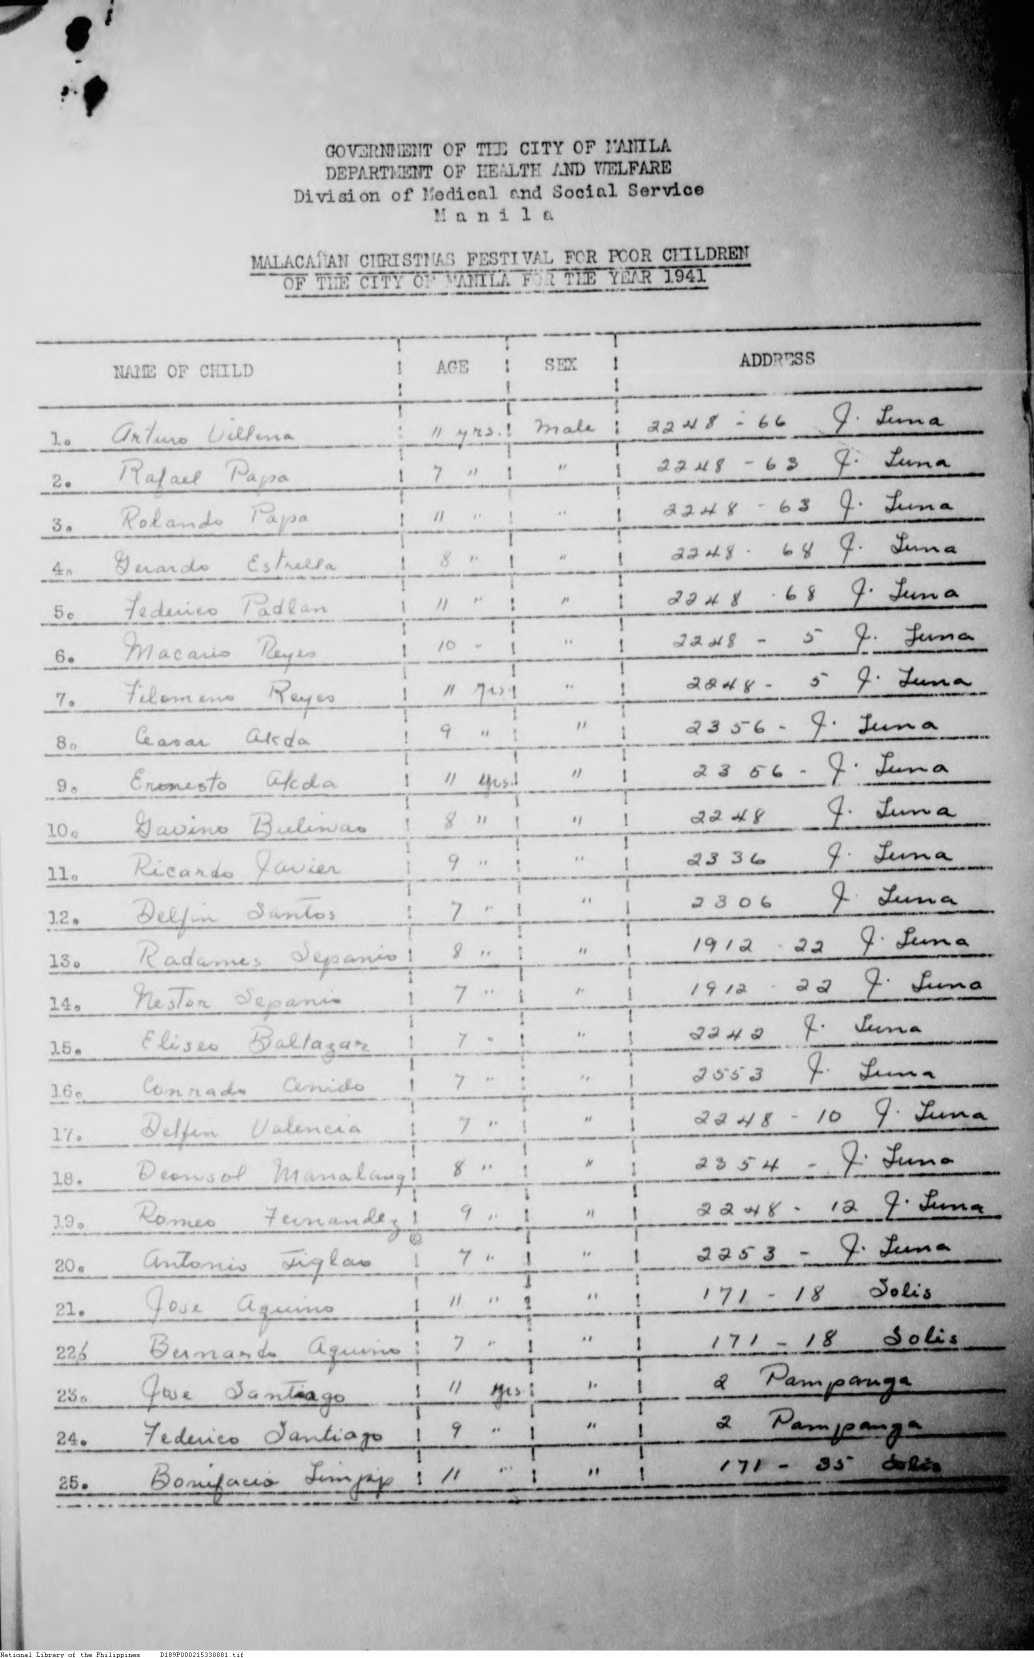 GOVERNMENT OF THE CITY OF MANILA
DEPARTMENT OF HEALTH AND WELFARE
Division of Medical and Social Service
M a n i l a
MALACAÑAN CHRISTMAS FESTIVAL FOR POOR CHILDREN
OF THE CITY OF MANILA FOR THE YEAR 1941
NAME OF CHILD AGE SEX ADDRESS
1. Arturo Villena 11 yrs. Male 2248 - 66 J. Luna
2. Rafael Papa 7 " " 2248 - 63 J. Luna
3. Rolando Papa 11 " " 2248 - 63 J. Luna
4. Gerardo Estrella 8 " " 2248 - 68 J. Luna
5. Federico Padlan 11 " " 2248 - 68 J. Luna
6. Macario Reyes 10 " " 2248 - 5 J. Luna
7. Filomeno Reyes 11 yrs " 2248 - 5 J. Luna
8. Ceasar Akda 9 " " 2356 - J. Luna
9. Ernesto Akda 11 yrs. " 2356 - J. Luna
10. Gavino Bulinao 8 " " 2248 J. Luna
11. Ricardo Javier 9 " " 2336 J. Luna
12. Delfin Santos 7 " " 2306 J. Luna
13. Radames Sepanio 8 " " 1912 - 22 J. Luna
14. Nestor Sepanio 7 " " 1912 - 22 J. Luna
15. Eliseo Baltazar 7 " " 2242 J. Luna
16. Conrado Cenido 7 " " 2553 J. Luna
17. Delfin Valencia 7 " " 2248 - 10 J. Luna
18. Deonsol Manalang 8 " " 2354 - J. Luna
19. Romeo Fernandez 9 " " 2248 - 12 J. Luna
20. Antonio Tiglao 7 " " 2253 - J. Luna
21. Jose Aquino 11 " " 171 - 18 Solis
22. Bernardo Aquino 7 " " 171 - 18 Solis
23. Jose Santiago 11 yrs " 2 Pampanga
24. Federico Santiago 9 " " 2 Pampanga
25. Bonifacio 11 " " 171 - 35 Solis
National Library of the Philippines D189P000215330881.tif